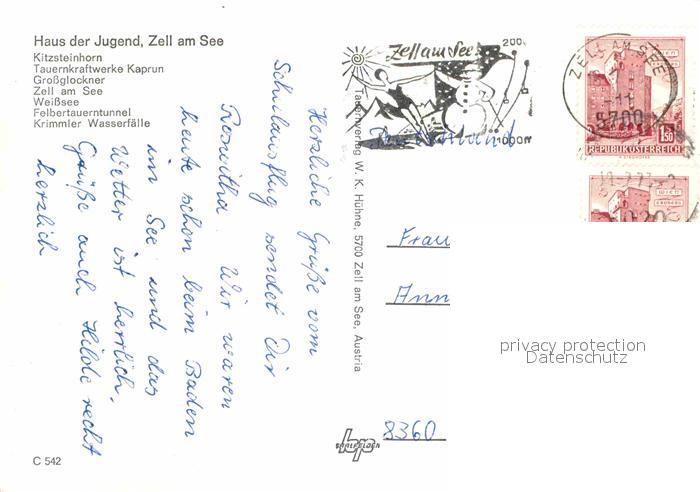 Haus der Jugend, Zell am See
Kitzsteinhorn
Tauernkraftwerke Kaprun
Großglockner
Zell am See
Weißsee
Felbertauerntunnel
Krimmler Wasserfälle
Herzliche Grüße vom
Schulausflug sendet Dir
Roswitha. Wir waren
heute schon beim Baden
im See und das
Wetter ist herrlich.
Grüße auch Hilde recht
herzlich
C 542
Tauernverlag W. K. Hühne, 5700 Zell am See, Austria
Zell am See
200
1000m
ZELL AM SEE
5700
1.50
REPUBLIK ÖSTERREICH
WIEN
Frau
Ann
privacy protection
Datenschutz
8360